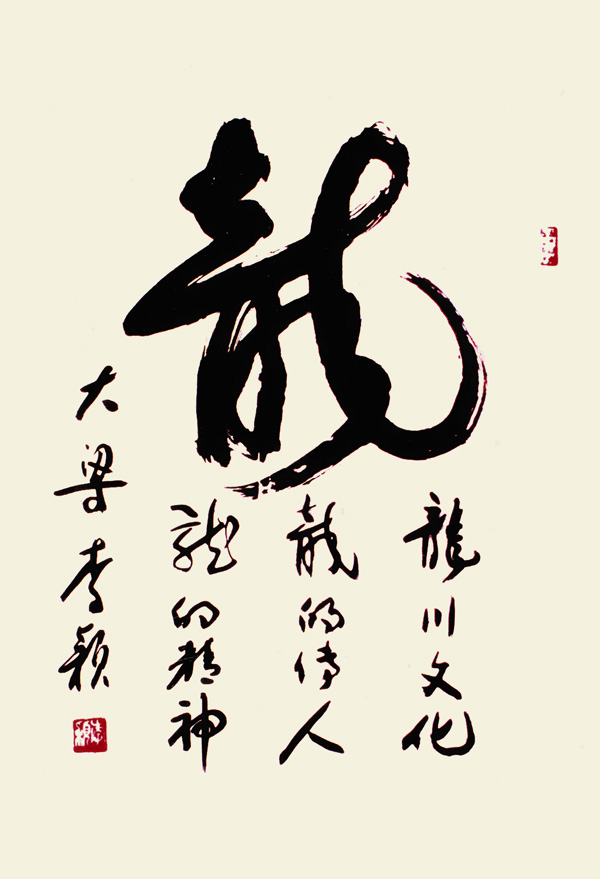 龍
龍川文化
龍的傳人
龍的精神
大梁李颖